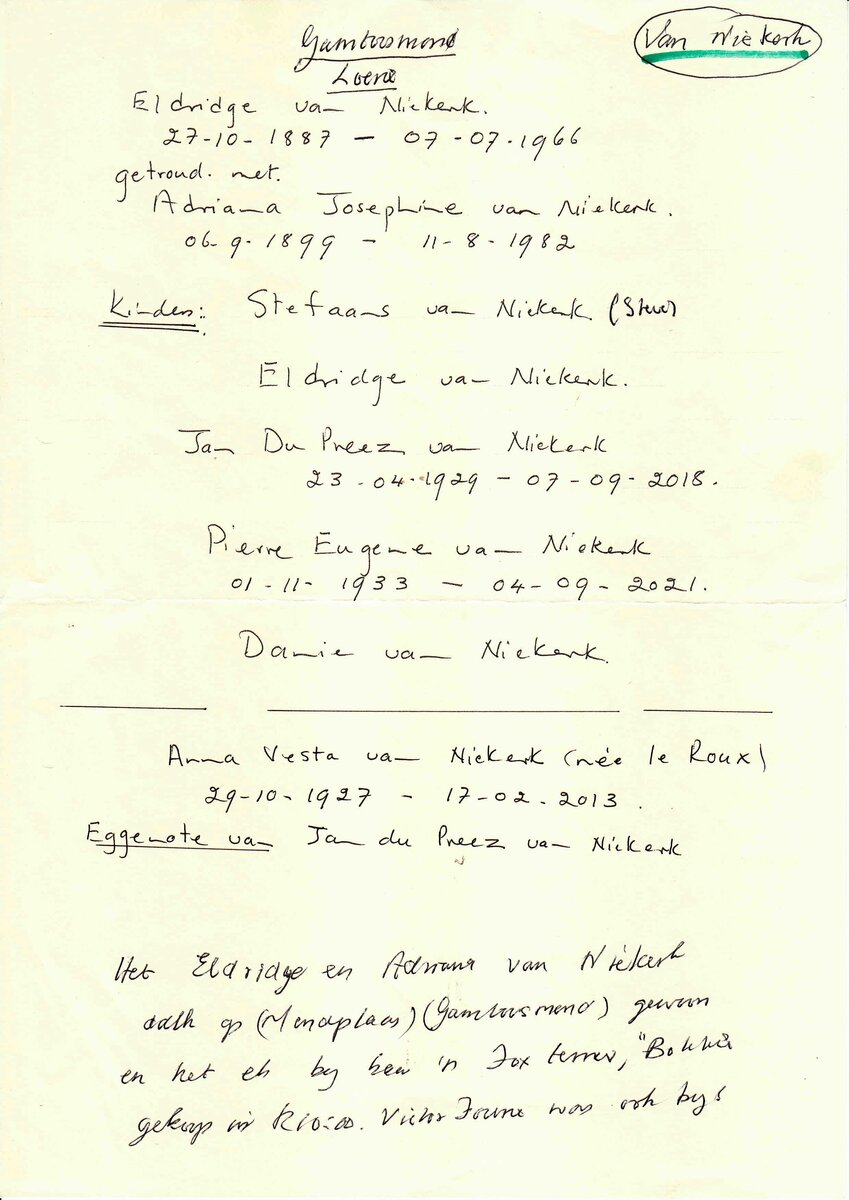 Gamtoosmond
Van Niekerk
Loerie
Eldridge van Niekerk.
27-10-1887 - 07-07-1966
getroud met.
Adriana Josephine van Niekerk.
06-9-1899 - 11-8-1982
Kinders:
Stefaans van Niekerk (Steve)
Eldridge van Niekerk.
Jan Du Preez van Niekerk
23-04-1929 - 07-09-2018.
Pierre Eugene van Niekerk
01-11-1933 - 04-09-2021.
Danie van Niekerk.
Anna Vesta van Niekerk (née le Roux)
29-10-1927 - 17-02-2013.
Eggenote van Jan du Preez van Niekerk
Het Eldridge en Adriana van Niekerk
dalk op (Mondplaas) (Gamtoosmond) gewoon
en het ek by hom 'n Fox terrier, "Bokkie
gekoop vir R10-00. Victor was ook by